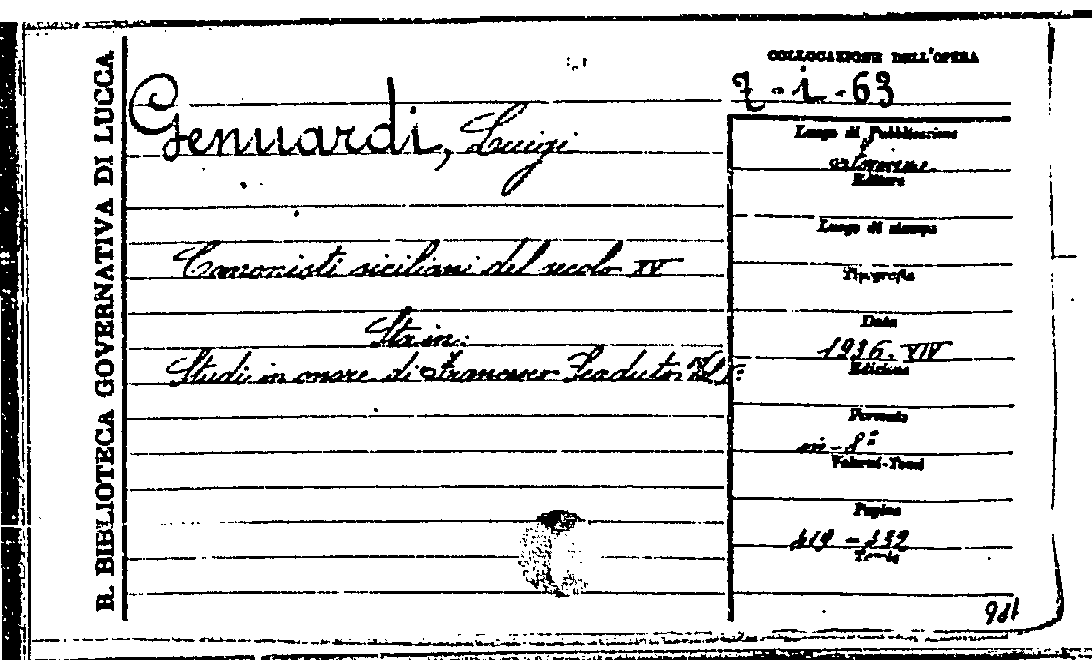 R. BIBLIOTECA GOVERNATIVA DI LUCCA
COLLOCAZIONE DELL'OPERA
7-i-63
Genuardi, Luigi
Canonisti siciliani del secolo XIV
Sta in:
Studi in onore di Francesco Scaduto.
Luogo di Pubblicazione
Editore
Luogo di stampa
Tipografia
Data
1936. XIV
Edizione
Formato
in-8°
Volumi-Tomi
Pagine
Tavole